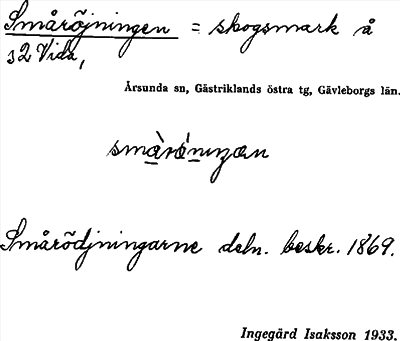 Småröjningen = skogsmark å
s2 Vida,
Årsunda sn, Gästriklands östra tg, Gävleborgs län.
Smårödjningarne deln. beskr. 1869.
Ingegärd Isaksson 1933.